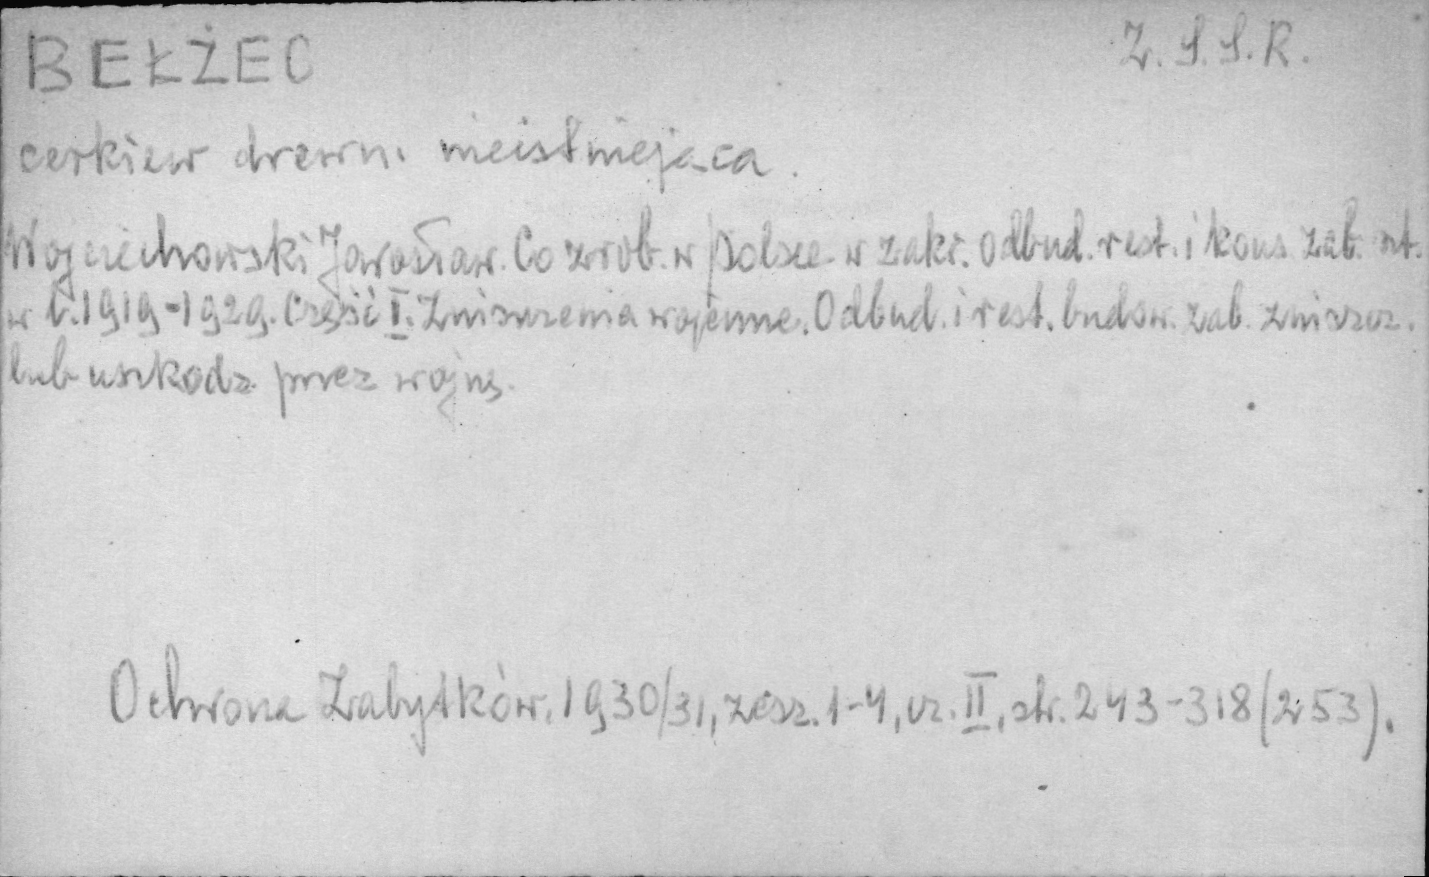 BEŁŻEC Z.S.S.R.
cerkiew drewn. nieistniejąca.
Wojciechowski Jarosław. Co zrob. w Polsce w zakr. odbud. rest. i kons. zab. szt.
w l. 1919-1929. Część I. Zniszczenia wojenne. Odbud. i rest. budow. zab. zniszcz.
lub uszkodz. przez wojnę.
Ochrona Zabytków. 1930/31, zesz. 1-4, cz. II, str. 243-318 (253).